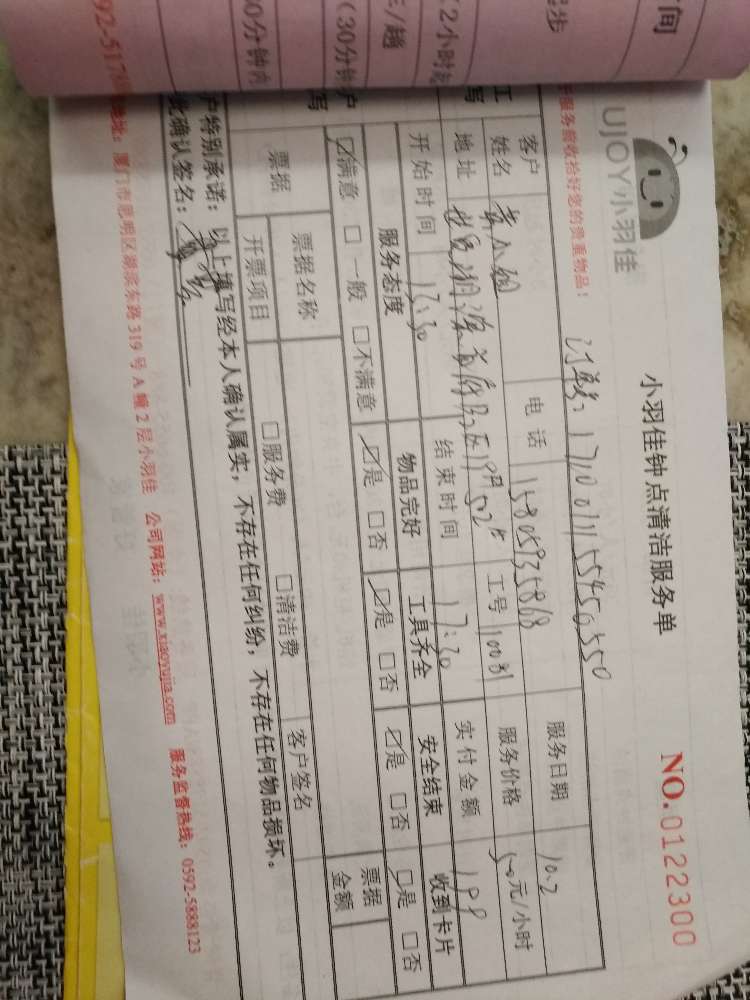 间
起步
(2小时起
元/趟
(30分钟
00分钟内
UJOY小羽佳
小羽佳钟点清洁服务单
NO.0122300
服务前收拾好您的贵重物品!
客户
姓名
电话
15805935868
服务日期
10.2
地址
502
工号
服务价格
元/小时
开始时间
13:30
结束时间
17:30
实付金额
服务态度
物品完好
工具齐全
安全结束
收到卡片
☑满意 □一般 □不满意
☑是 □否
☑是 □否
☑是 □否
□是 □否
票据
票据名称
开票项目
□服务费 □清洁费
客户签名
票据
金额
户特别承诺:以上填写经本人确认属实,不存在任何纠纷,不存在任何物品损坏。
此确认签名:
地址:厦门市思明区湖滨东路319号A幢2层小羽佳 公司网站:www.xiaoyujia.com 服务监督热线:0592-5888123